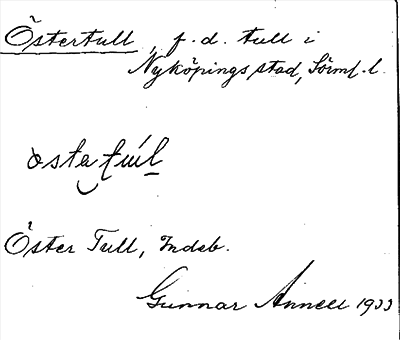 Östertull, f.d. tull i
Nyköpings stad, Sörml. l.
östa tul
Öster Tull, Indeb.
Gunnar Annell 1933